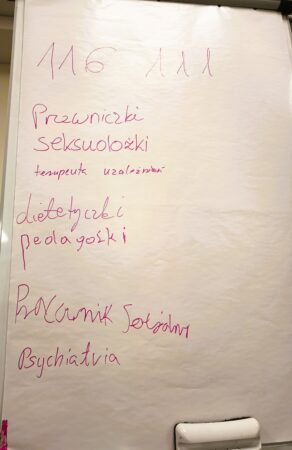 116 111
Prawniczki
seksuolożki
terapeuta uzależnień
dietetyczki
pedagożki
Pracownik Socjalny
Psychiatria